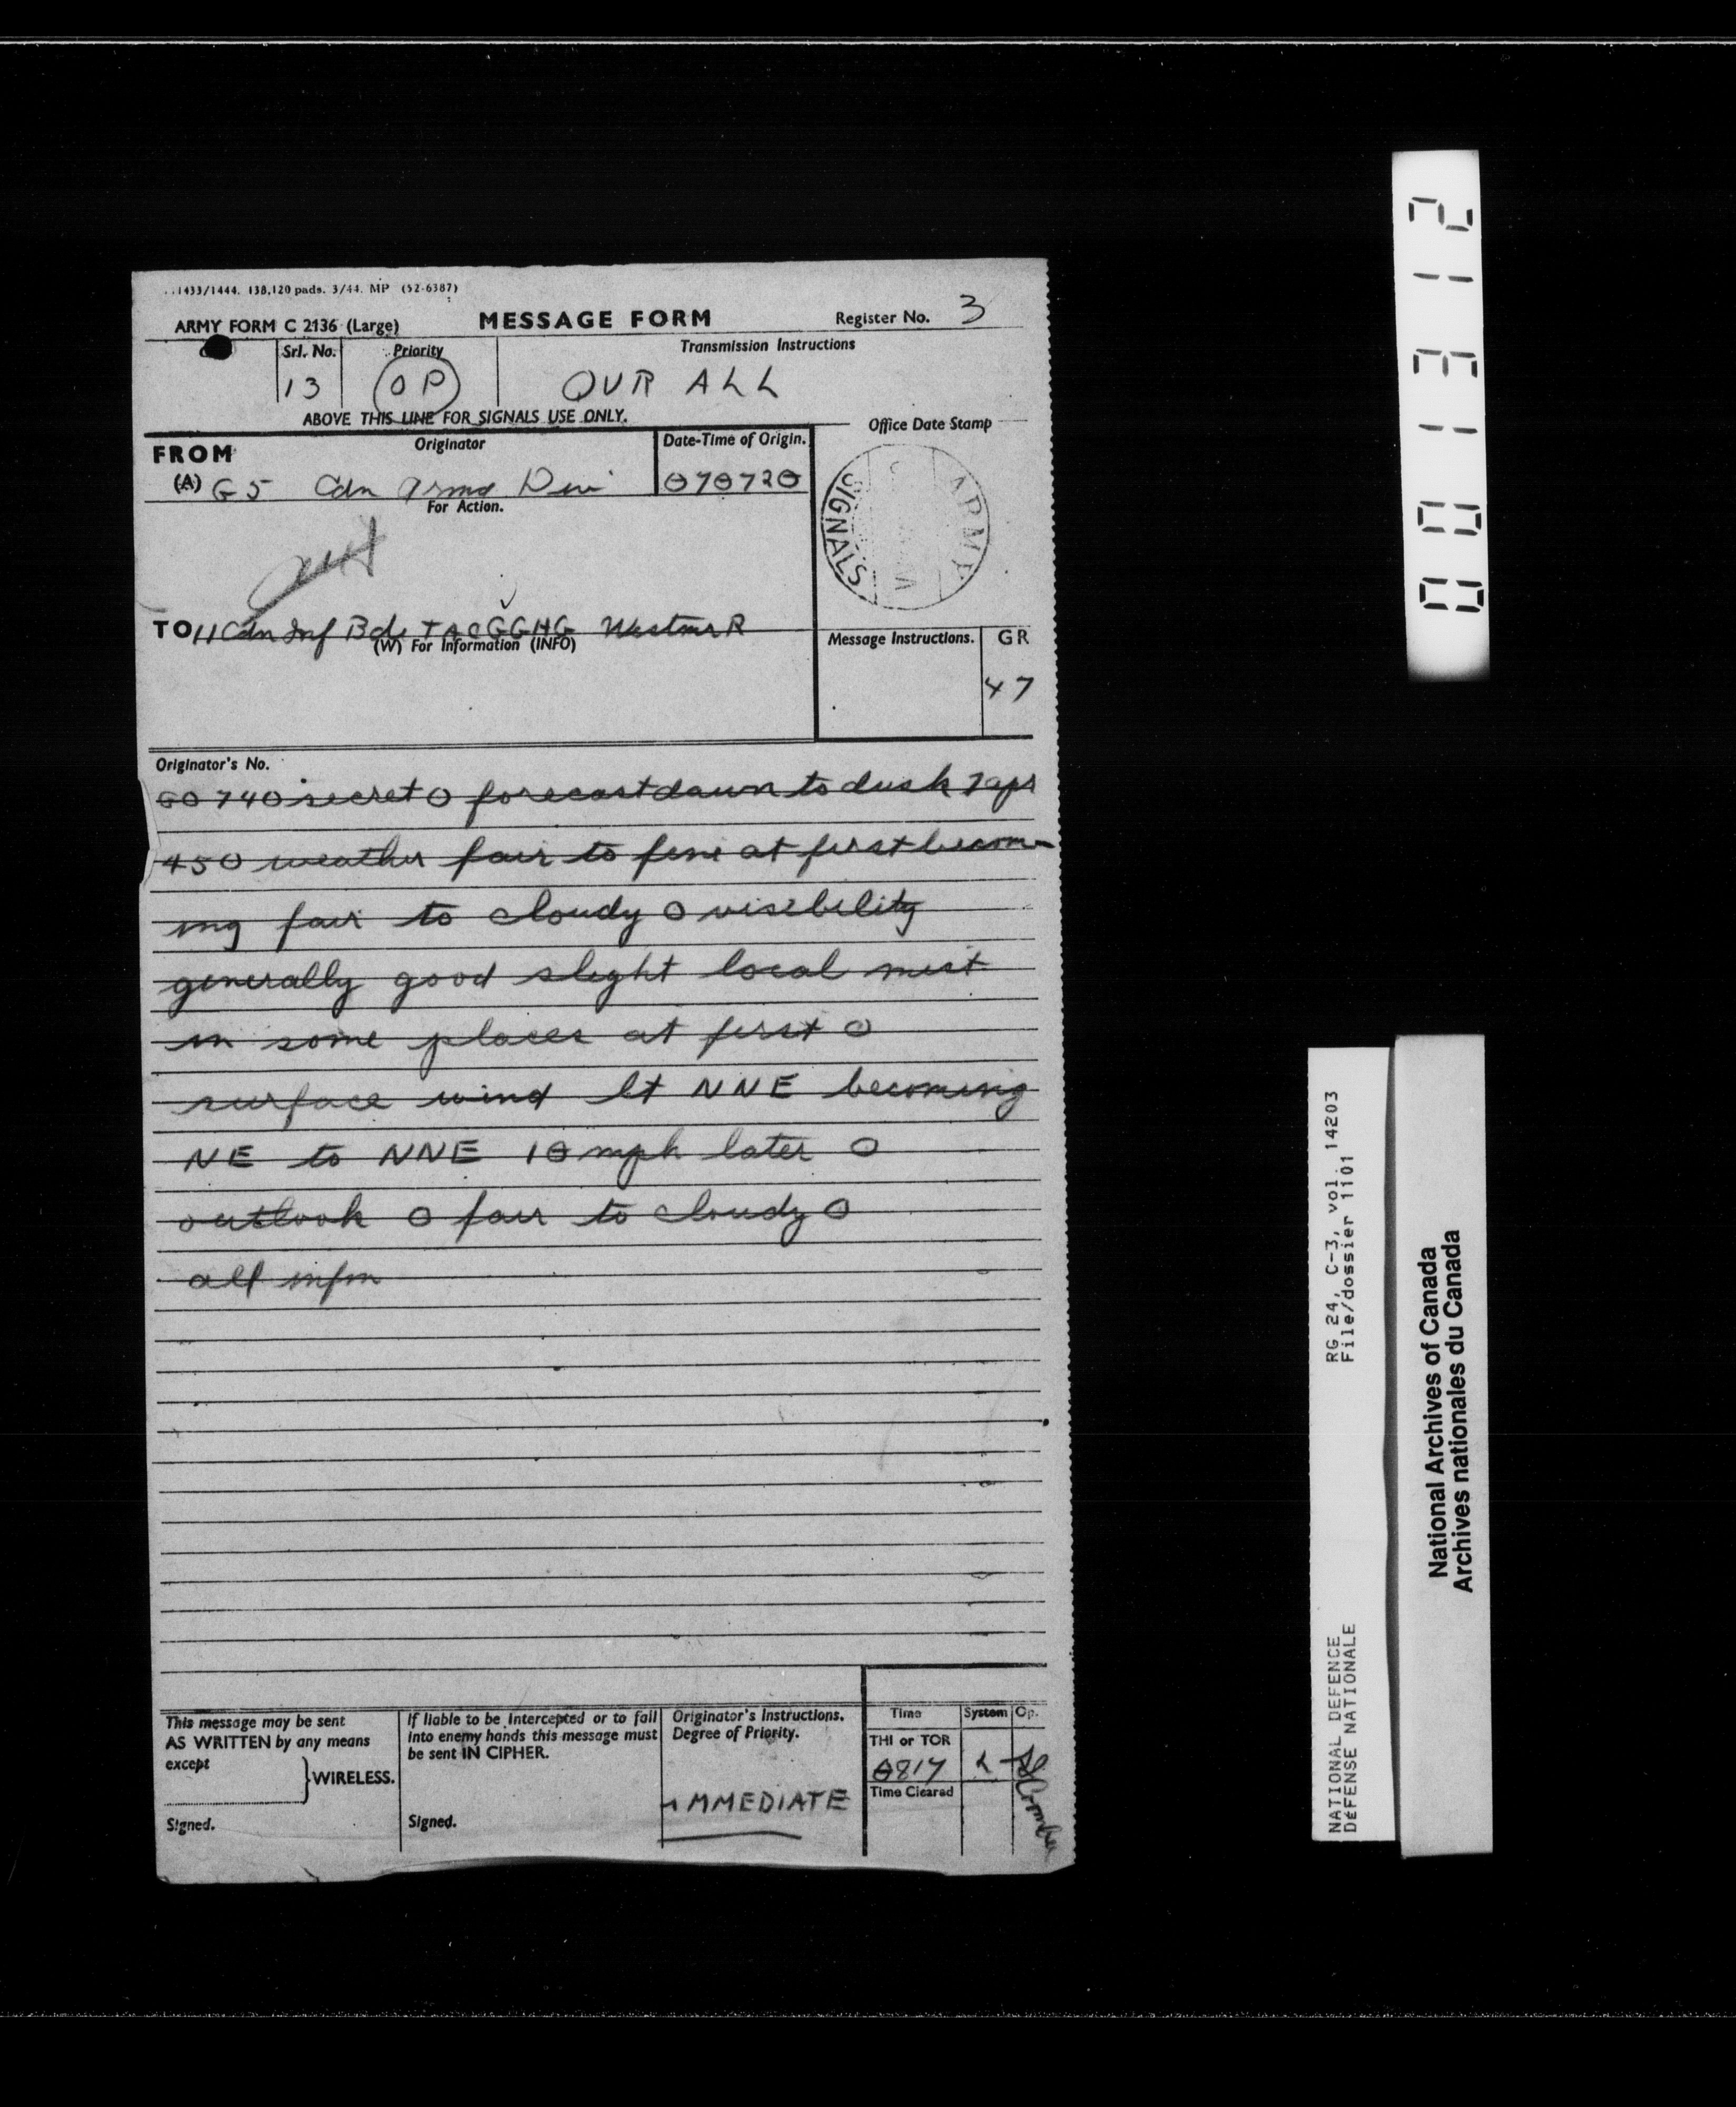 1433/1444. 138,120 pads. 3/44. MP (52-6387)
ARMY FORM C 2136 (Large) MESSAGE FORM Register No. 3
Srl. No. Priority Transmission Instructions
13 OP QVR ALL
ABOVE THIS LINE FOR SIGNALS USE ONLY.
FROM Originator Date-Time of Origin. Office Date Stamp
(A) G 5 Cdn Armd Div 070720
For Action.
ARMY SIGNALS
TO 11 Cdn Inf Bde TAC GGHG Westmr R
(W) For Information (INFO) Message Instructions. GR
47
Originator's No.
GO 740 secret O forecast dawn to dusk 7 apr
45 O weather fair to fine at first becom-
ing fair to cloudy O visibility
generally good slight local mist
in some places at first O
surface wind lt NNE becoming
NE to NNE 10 mph later O
outlook O fair to cloudy O
all infm
This message may be sent
AS WRITTEN by any means
except
WIRELESS.
Signed.
If liable to be intercepted or to fall
into enemy hands this message must
be sent IN CIPHER.
Signed.
Originator's Instructions.
Degree of Priority.
IMMEDIATE
Time System Op.
THI or TOR
0817 L
Time Cleared
001312
RG 24, C-3, vol. 14203
File/dossier 1101
NATIONAL DEFENCE
DéFENSE NATIONALE
National Archives of Canada
Archives nationales du Canada